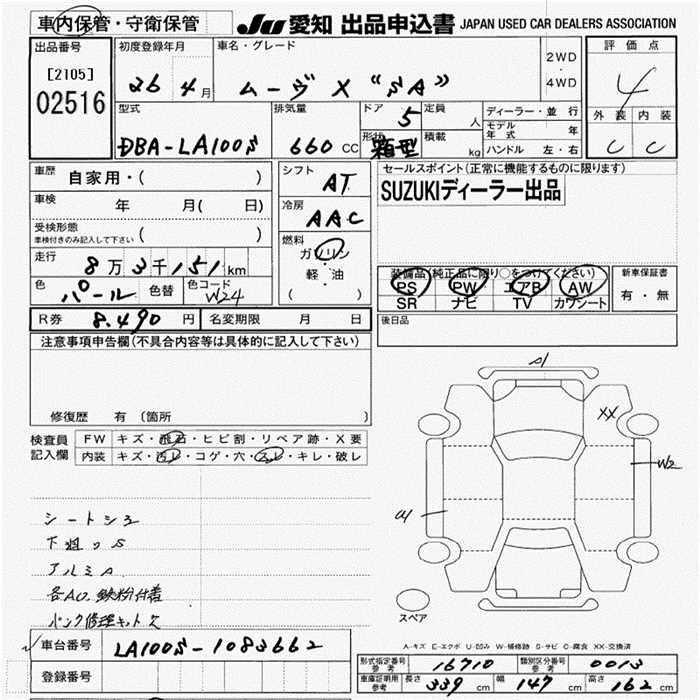 車内保管・守衛保管 JU 愛知 出品申込書 JAPAN USED CAR DEALERS ASSOCIATION
出品番号 [2105] 02516
初度登録年月 26 年 4 月
車名・グレード ムーヴ X "SA"
2WD・4WD
評価点 4
外装 内装
C C
型式 DBA-LA100S
排気量 660 CC
ドア 5
形状 箱型
定員 人
積載 kg
ディーラー・並行
モデル年式 年
ハンドル 左・右
車歴 自家用・( )
車検 年 月( 日)
受検形態 車検付きのみ記入して下さい ( )
走行 8万3千151km
色 パール 色替 色コード W24
シフト AT
冷房 AAC
燃料 ガソリン・軽・油 ( )
セールスポイント(正常に機能するものに限ります)
SUZUKIディーラー出品
装備品(純正品に限り○をつけてください)
PS PW エアB AW
SR ナビ TV カワシート
新車保証書 有・無
R券 8.490 円 名変期限 月 日
後日品
注意事項申告欄(不具合内容等は具体的に記入して下さい)
修復歴 有 〔箇所 〕
検査員記入欄
FW キズ・飛石・ヒビ割・リペア跡・X要
内装 キズ・汚レ・コゲ・穴・スレ・キレ・破レ
シートシミ
下廻りS
アルミA
各A0.鉄粉付着
パンク修理キット欠
A1
XX
W2
U1
スペア
A-キズ E-エクボ U-凹み W-補修跡 S-サビ C-腐食 XX-交換済
車台番号 LA100S-1083662
登録番号
形式指定番号 参考 16710 類別区分番号 参考 0013
車庫証明用 参考 長さ 339 cm 幅 147 cm 高さ 162 cm